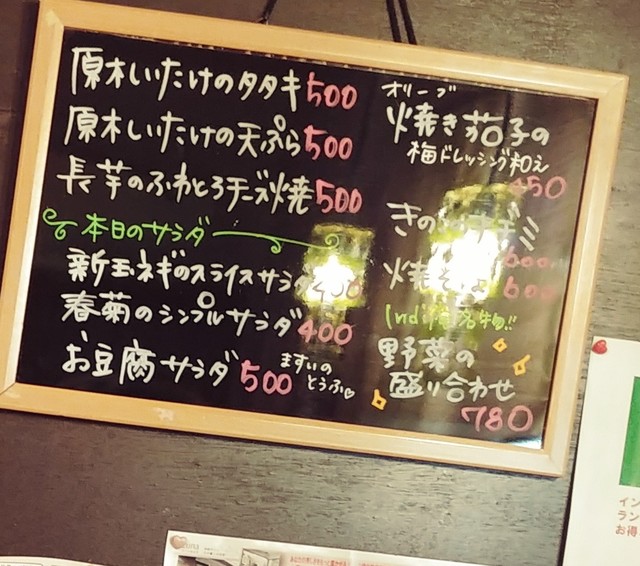 原木しいたけのタタキ 500
原木しいたけの天ぷら 500
長芋のふわとろチーズ焼 500
本日のサラダ
新玉ネギのスライスサラダ
春菊のシンプルサラダ 400
お豆腐サラダ 500
ますいの
とうふ
オリーブ
焼き茄子の
梅ドレッシング和え
450
きの
600
焼き
600
名物!!
野菜の
盛り合わせ
780
イン
ラン
お得